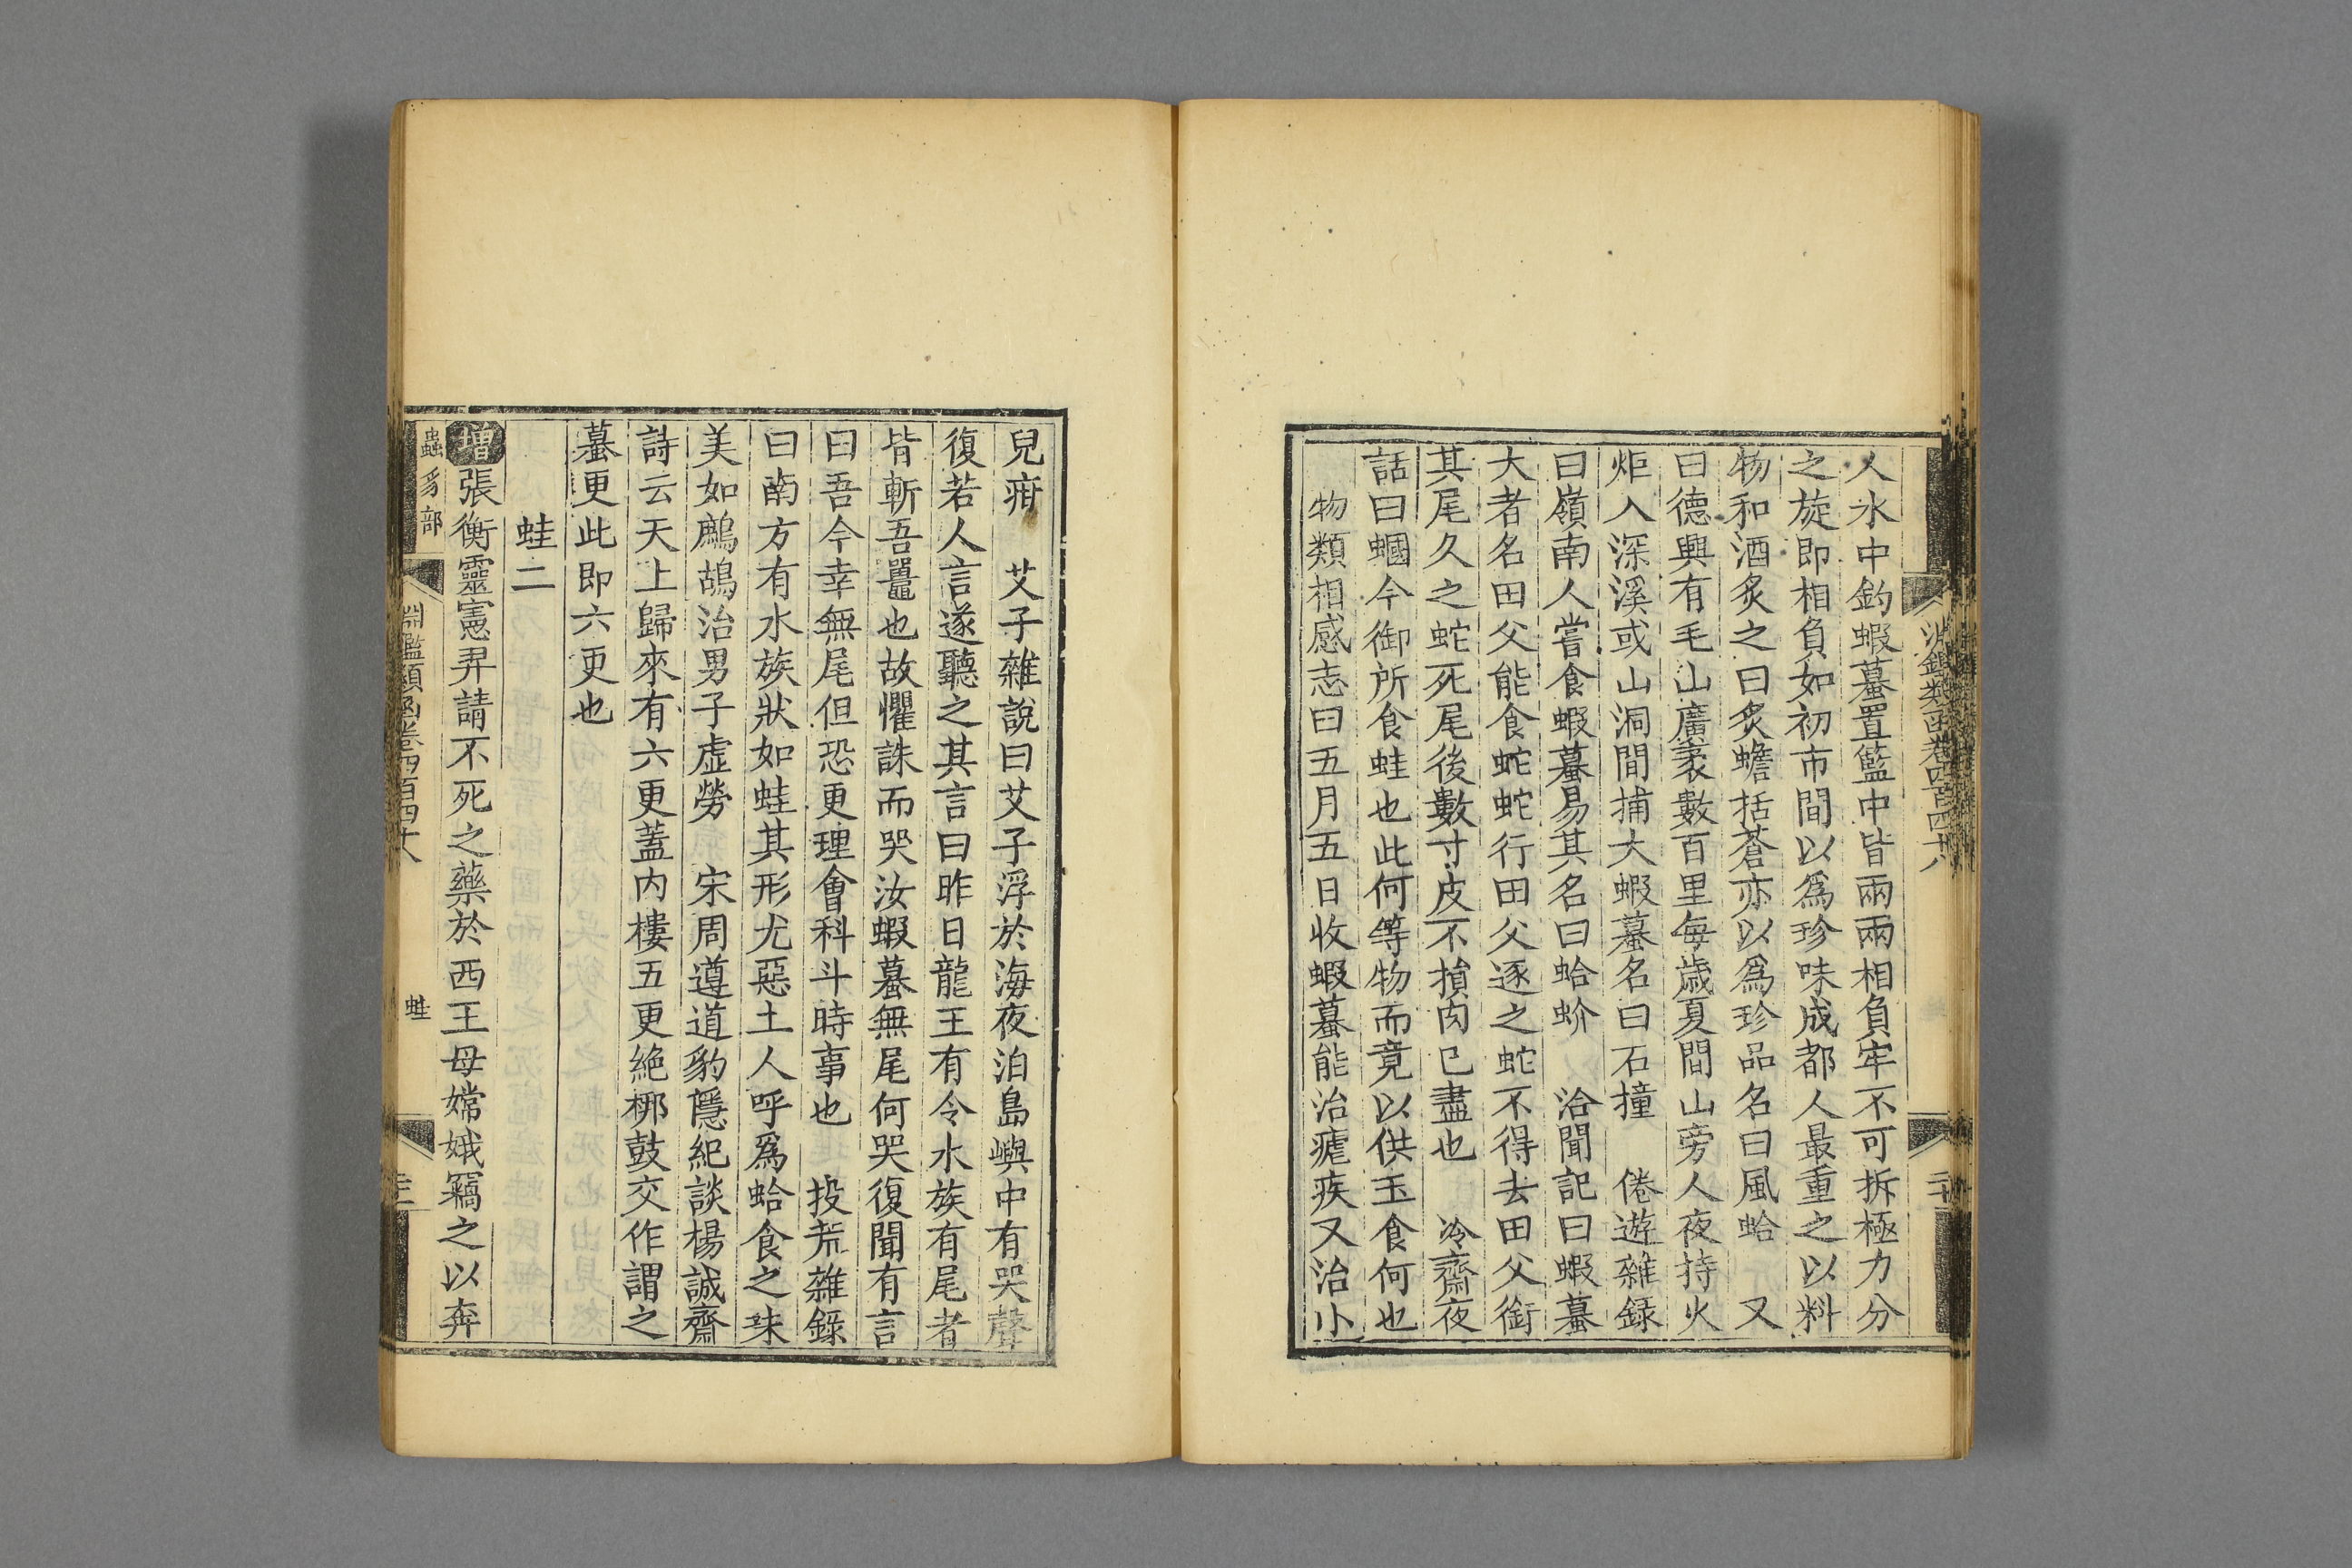 淵鑑類函卷四百四十八
人水中釣蝦蟇置籃中皆兩兩相負牢不可拆極力分
之旋即相負如初市間以爲珍味成都人最重之以料
物和酒炙之曰炙蟾括蒼亦以爲珍品名曰風蛤　又
曰德興有毛山廣袤數百里每歲夏間山旁人夜持火
炬入深溪或山洞間捕大蝦蟇名曰石撞　倦遊雜録
曰嶺南人嘗食蝦蟇易其名曰蛤蚧　洽聞記曰蝦蟇
大者名田父能食蛇蛇行田父逐之蛇不得去田父銜
其尾久之蛇死尾後數寸皮不損肉已盡也　冷齋夜
話曰蟈今御所食蛙也此何等物而竟以供玉食何也
物類相感志曰五月五日收蝦蟇能治瘧疾又治小
兒疳　艾子雜說曰艾子浮於海夜泊島嶼中有哭聲
復若人言遂聽之其言曰昨日龍王有令水族有尾者
皆斬吾鼉也故懼誅而哭汝蝦蟇無尾何哭復聞有言
曰吾今幸無尾但恐更理會科斗時事也　投荒雜錄
曰南方有水族狀如蛙其形尤惡土人呼爲蛤食之珠
美如鷓鴣治男子虛勞　宋周遵道豹隱紀談楊誠齋
詩云天上歸來有六更蓋内樓五更絶梆鼓交作謂之
蟇更此即六更也
蛙二
增張衡靈憲羿請不死之藥於西王母嫦娥竊之以奔
蟲豸部
淵鑑類函卷四百四十八
蛙